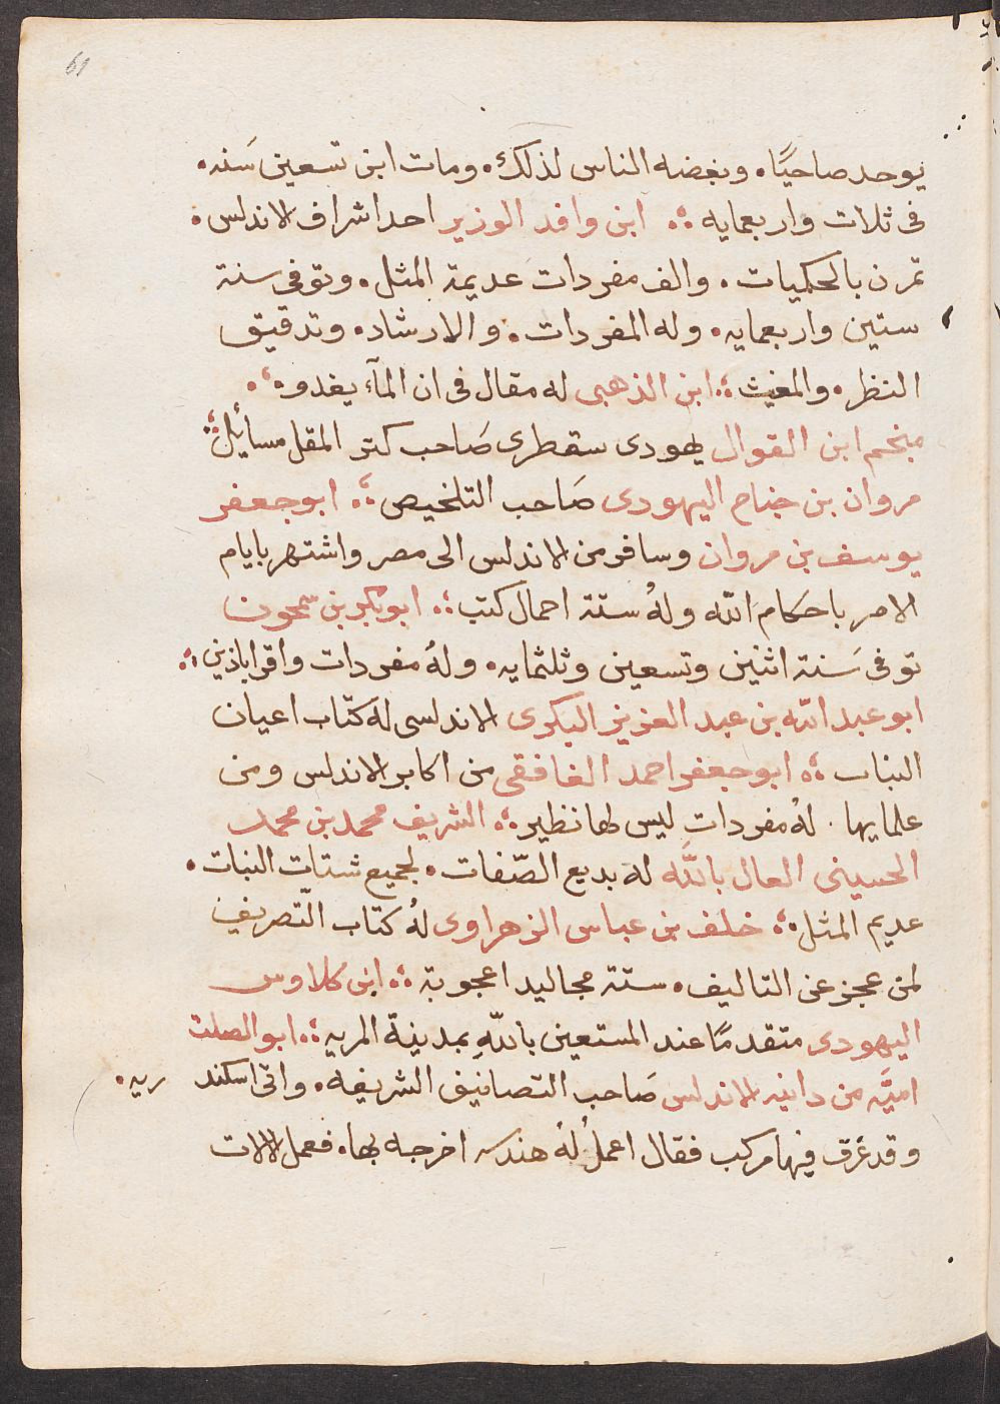 61
يوحد صاحيًا. وبغضه الناس لذلك. ومات ابن تسعين سَنه.
فى ثلاث واربعمايه ؞ ابن وافد الوزير احد اشراف الاندلس.
تمرن بالحكميات. والف مفردات عديمة المثل. وتوفى سنة
ستين واربعمايه. وله المفردات. والارشاد. وتدقيق
النظر. والمغيث ؞ ابن الذهبى له مقال فى ان المآء يغدو.
منجم ابن القوال يهودى سقطرى صَاحب كنز المقل مسايُل ؞
مروان بن جناح اليهودى صَاحب التلخيص ؞ ابو جعفر
يوسف بن مروان وسافر من الاندلس الى مصر واشتهر بايام
الامر باحكام الله ولهُ ستة احمال كتب ؞ ابو بكر بن سمحون
توفى سَنة اثنين وتسعين وثلثمايه. ولهُ مفردات واقراباذين ؞
ابو عبد الله بن عبد العزيز البكرى الاندلسى له كتاب اعيان
النبات ؞ ابو جعفر احمد الغافقى من اكابر الاندلس ومن
علمايها. لهُ مفردات ليس لها نظير ؞ الشريف محمد بن محمد
الحسينى العال باللَّه له بديع الصّفات. لجميع شتات النبات.
عديم المثل ؞ خلف بن عباس الزهراوى لهُ كتاب التّصريف
لمن عجز عن التاليف. ستة مجاليد اعجوبة ؞ ابن كلاوس
اليهودى متقدمًا عند المستعين باللّهِ بمدينة المريه ؞ ابو الصلت
اميَّه من دانيه الاندلس صَاحب التصانيف الشريفه. واتى اسكندريه.
وقد غرق فيها مركب فقال اعملُ لهُ هندسه اخرجه بها. فعمل الالات